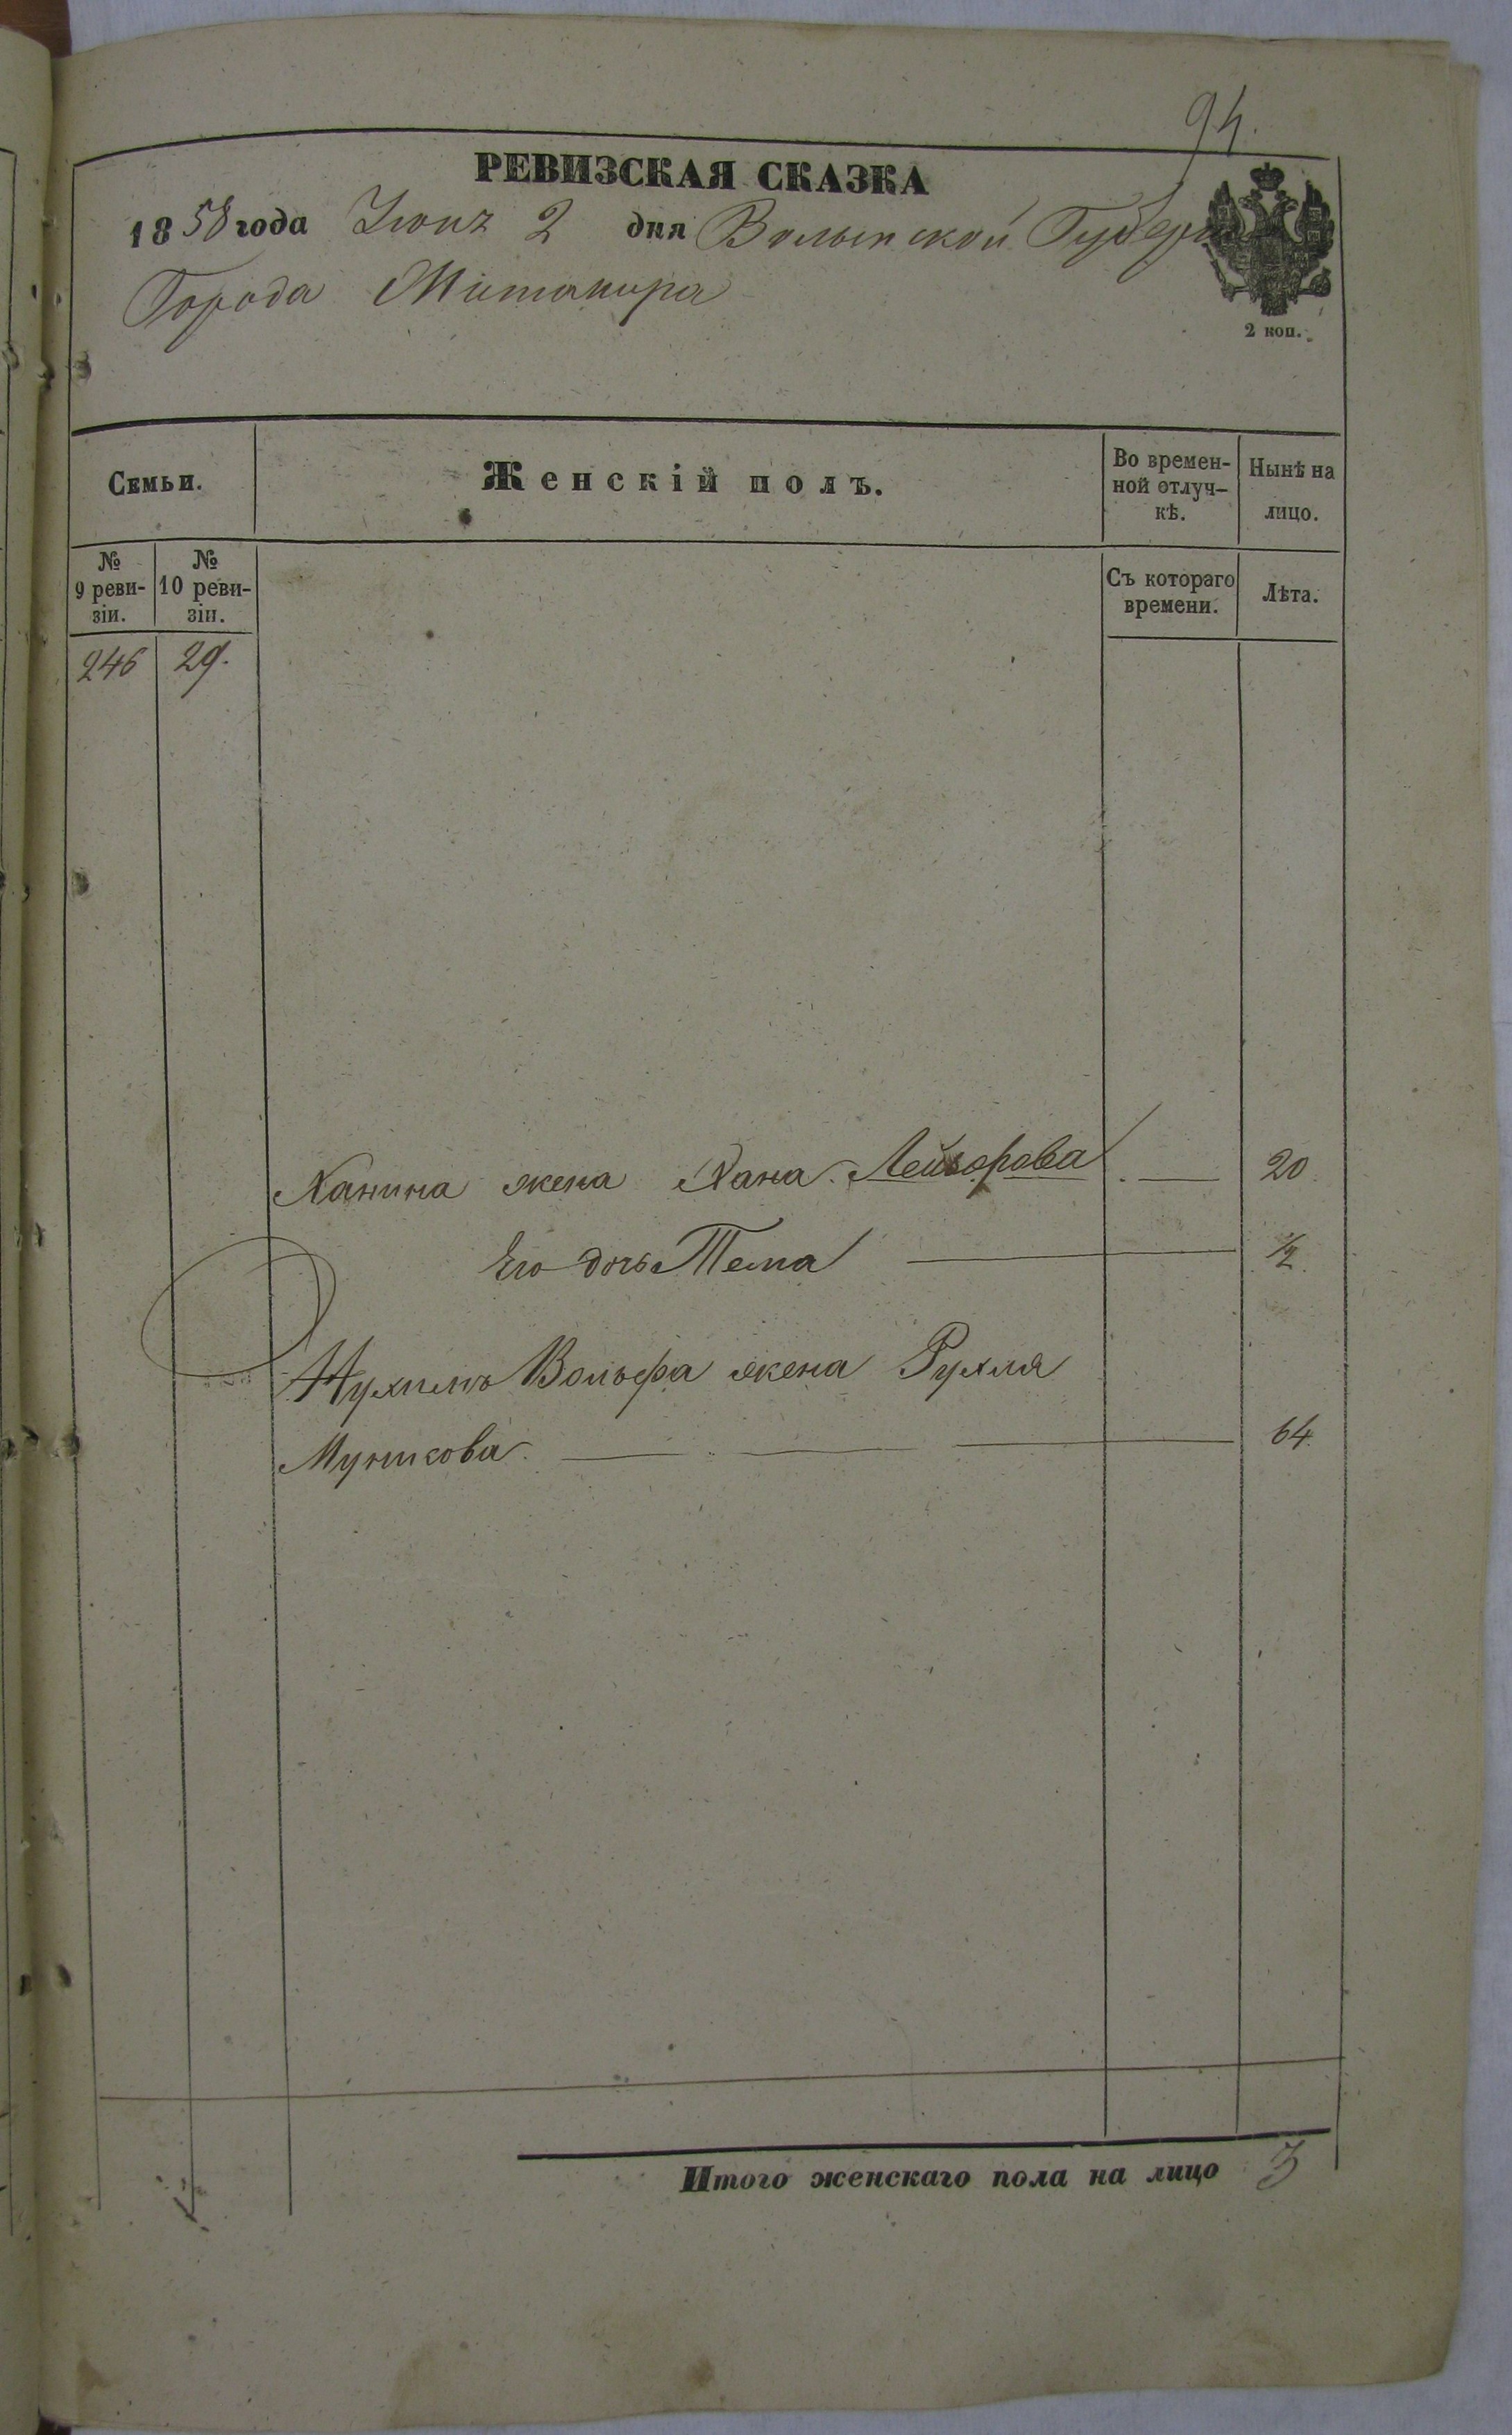 94.
РЕВИЗСКАЯ СКАЗКА
1858 года Іюня 2 дня Волынской Губерн
Города Житомира
2 коп.
Семьи.
Женскій полъ.
Во времен-
ной отлуч-
кѣ.
Нынѣ на
лицо.
№
9 реви-
зіи.
№
10 реви-
зіи.
Съ котораго
времени.
Лѣта.
246 29.
Ханина жена Хана Лейзорова 20
Его дочь Тема ½
Нухимъ Вольфа жена Рухля
Мунисова 64
Итого женскаго пола на лицо 3